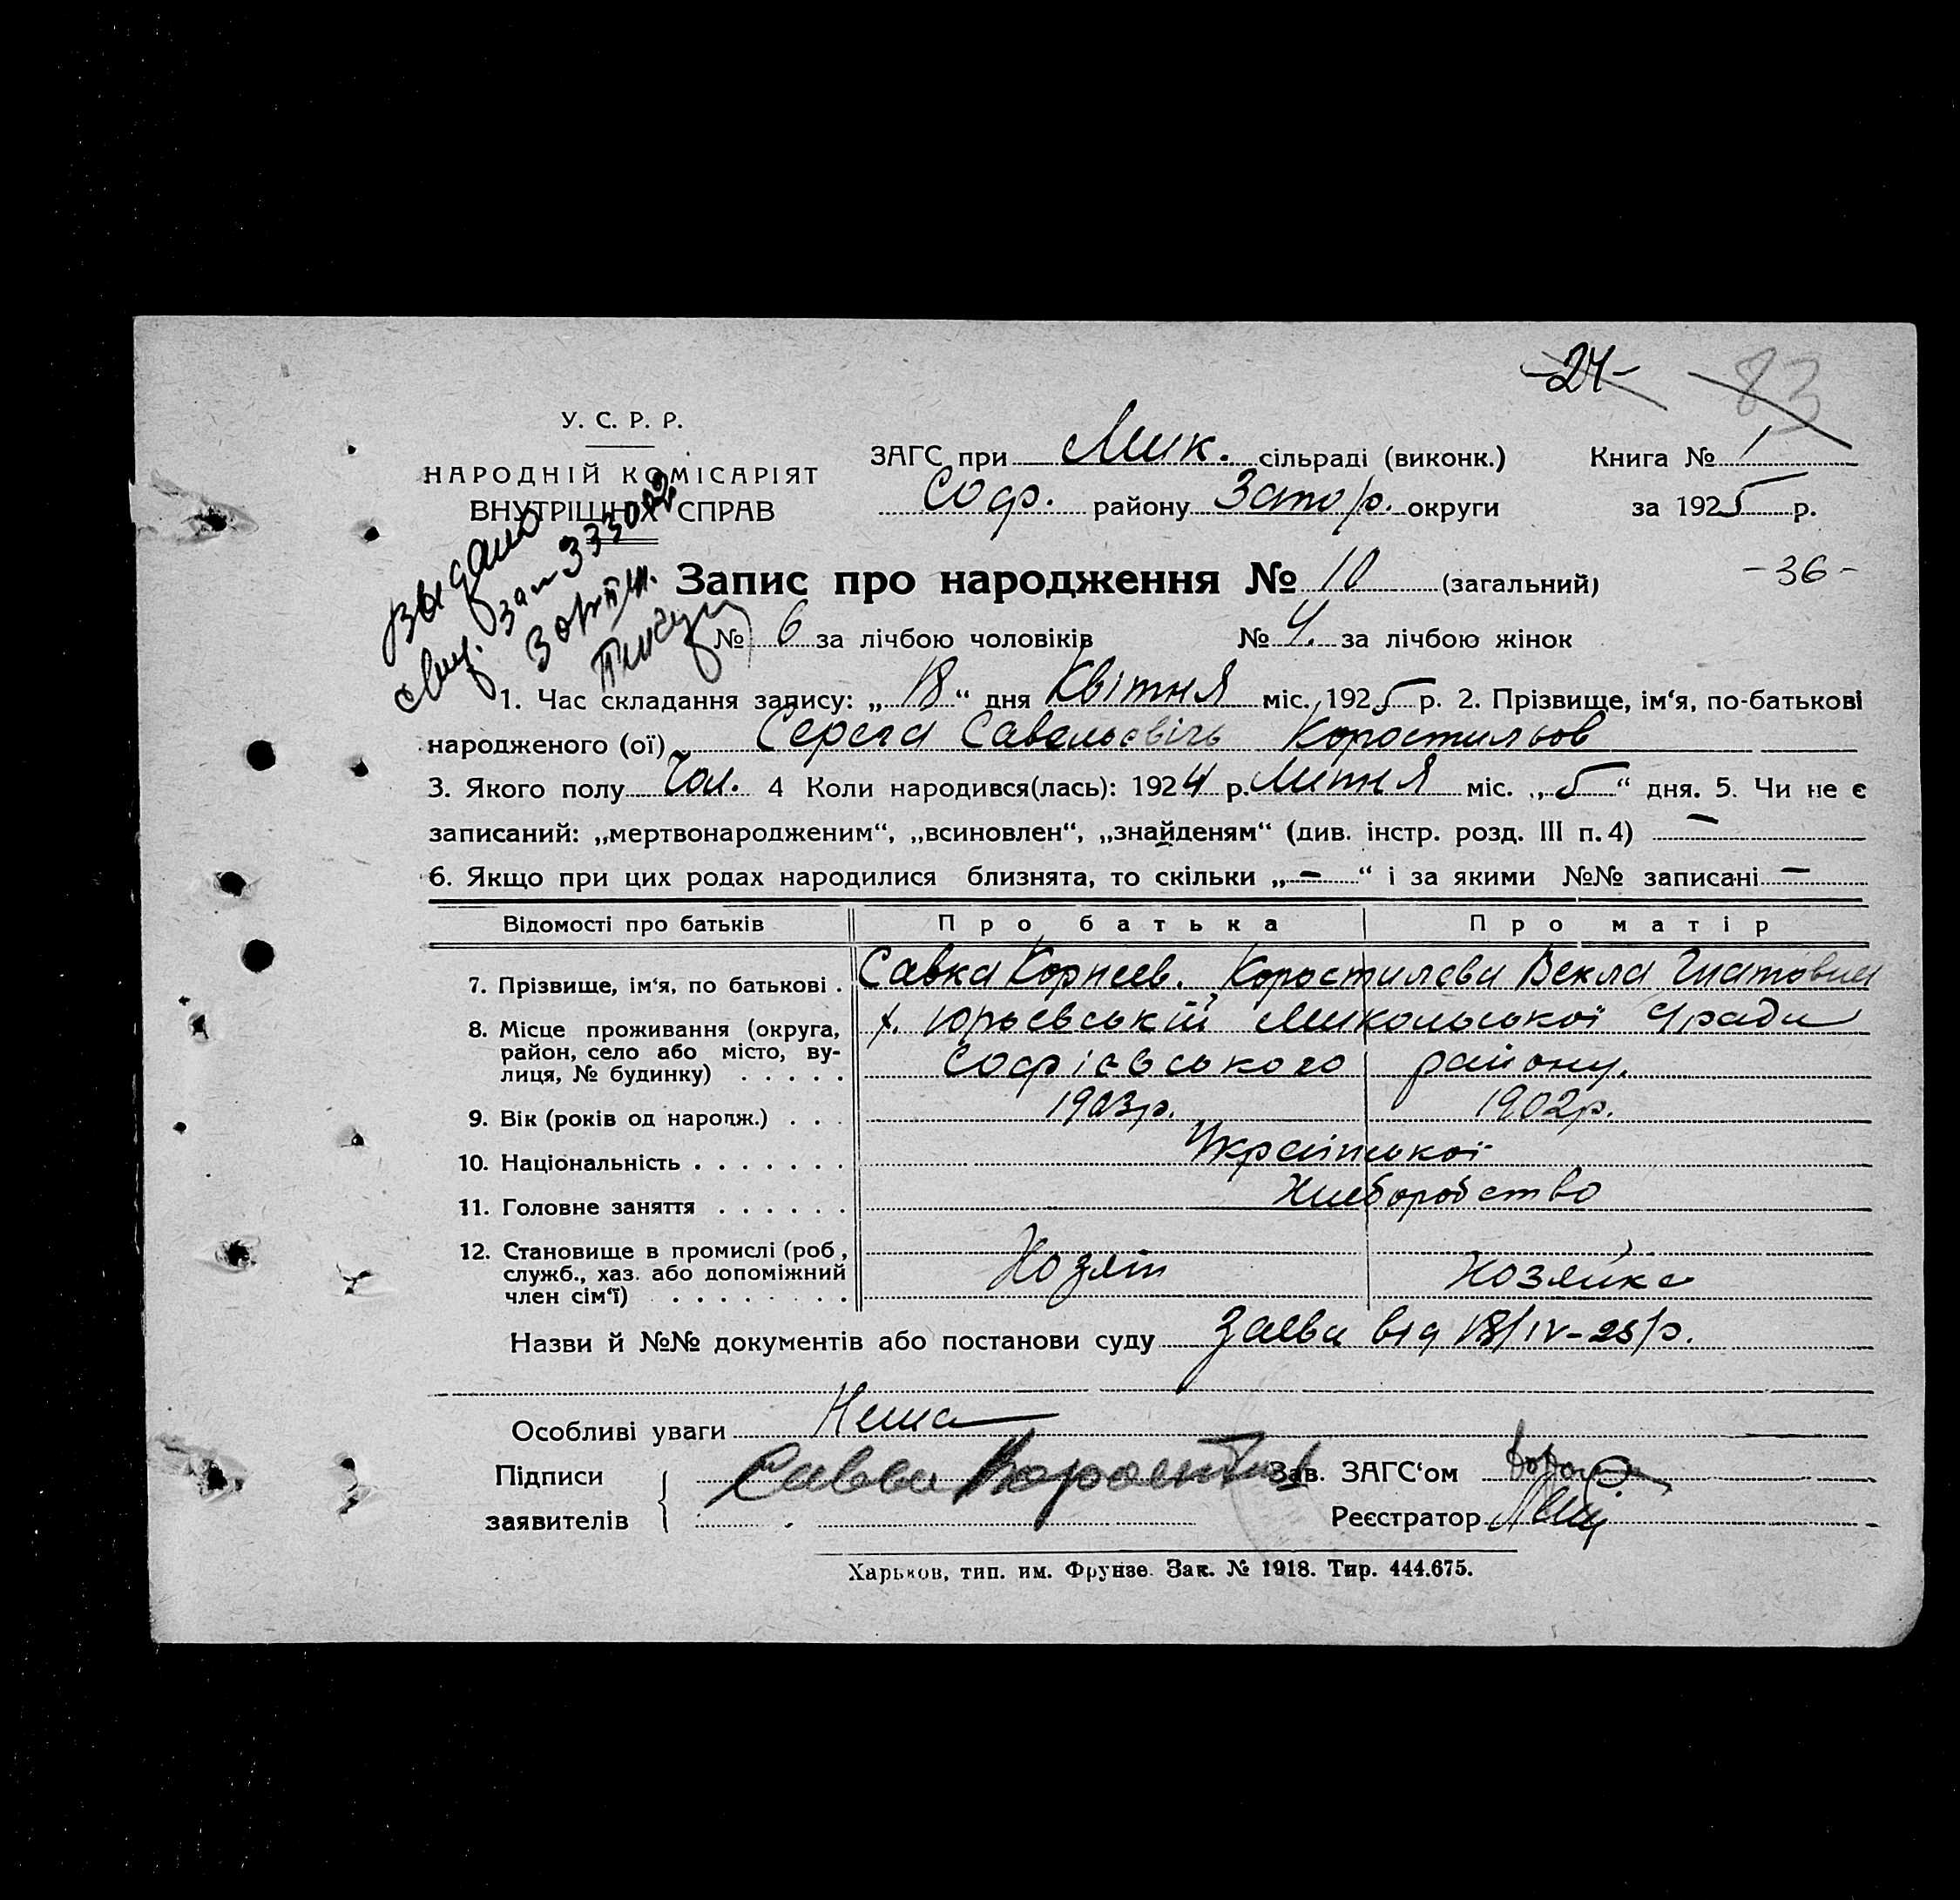 -24- 83
У. С. Р. Р.
НАРОДНІЙ КОМІСАРІЯТ
ВНУТРІШНІХ СПРАВ
ЗАГС при Мик. сільраді (виконк.) Книга № 1
Соф. району Запор. округи за 1925 р.
Видано
свид. за № 33302
Запис про народження № 10 (загальний) -36-
№ 6 за лічбою чоловіків № 4. за лічбою жінок
1. Час складання запису: „18“ дня Квітня міс. 1925 р. 2. Прізвище, ім‘я, по-батькові
народженого (ої) Серега Савельевічь Коростильов
3. Якого полу Чол. 4 Коли народився(лась): 1924 р. Литня міс. „5“ дня. 5. Чи не є
записаний: „мертвонародженим“, „всиновлен“, „знайденям“ (див. інстр. розд. III п. 4) —
6. Якщо при цих родах народилися близнята, то скільки „—“ і за якими №№ записані —
Відомості про батьків Про батька Про матір
7. Прізвище, ім‘я, по батькові . Савка Корнеев. Коростилєва Векла
8. Місце проживання (округа, х. Юрьєвський Микольської
район, село або місто, ву- Софієвського району.
лиця, № будинку) . . . . .
9. Вік (років од народж.) . . . 1903р. 1902р.
10. Національність . . . . . . . Української
11. Головне заняття . . . . . . Хлеборобство
12. Становище в промислі (роб., Хозяін Хозяйка
служб., хаз. або допоміжний
член сім‘ї) . . . . . . . .
Назви й №№ документів або постанови суду Заєва від 18/IV-25/р.
Особливі уваги Нема
Підписи Савва Коростил Зав. ЗАГС‘ом
заявителів Реєстратор
Харьков, тип. им. Фрунзе. Зак. № 1918. Тир. 444.675.